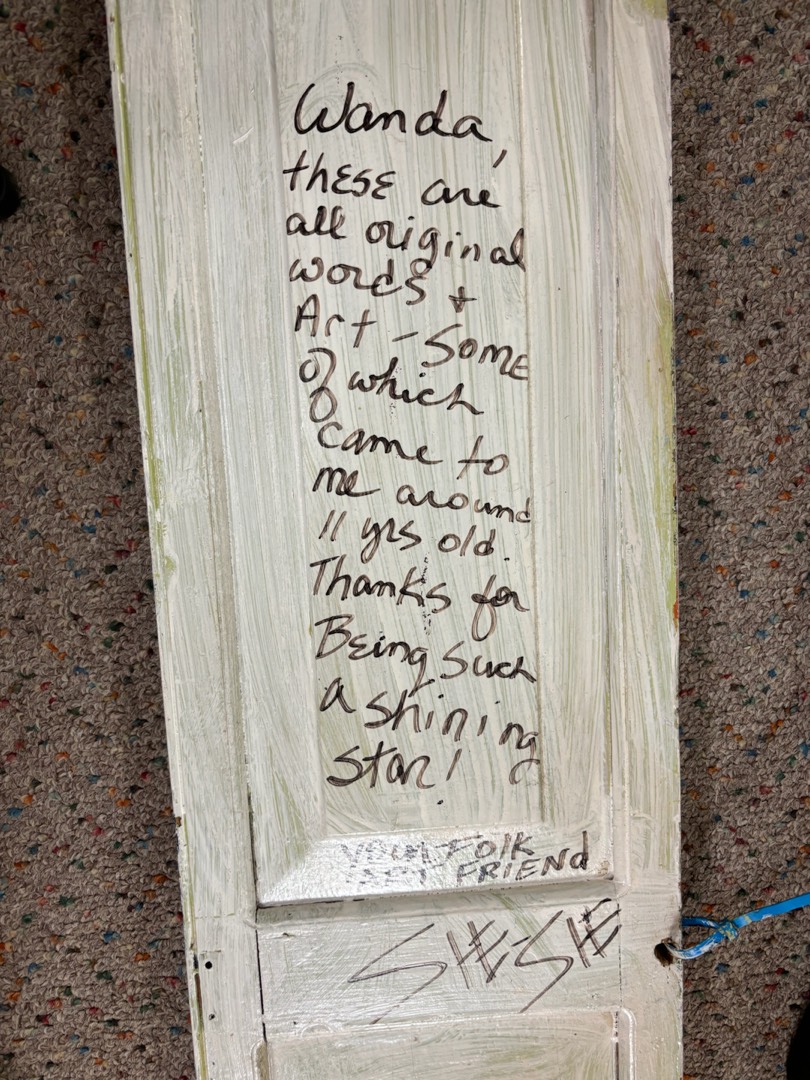 Wanda,
these are
all original
words +
Art - Some
of which
came to
me around
11 yrs old.
Thanks for
Being such
a shining
star!
YOUR FOLK
ART FRIEND
SIE-SIE